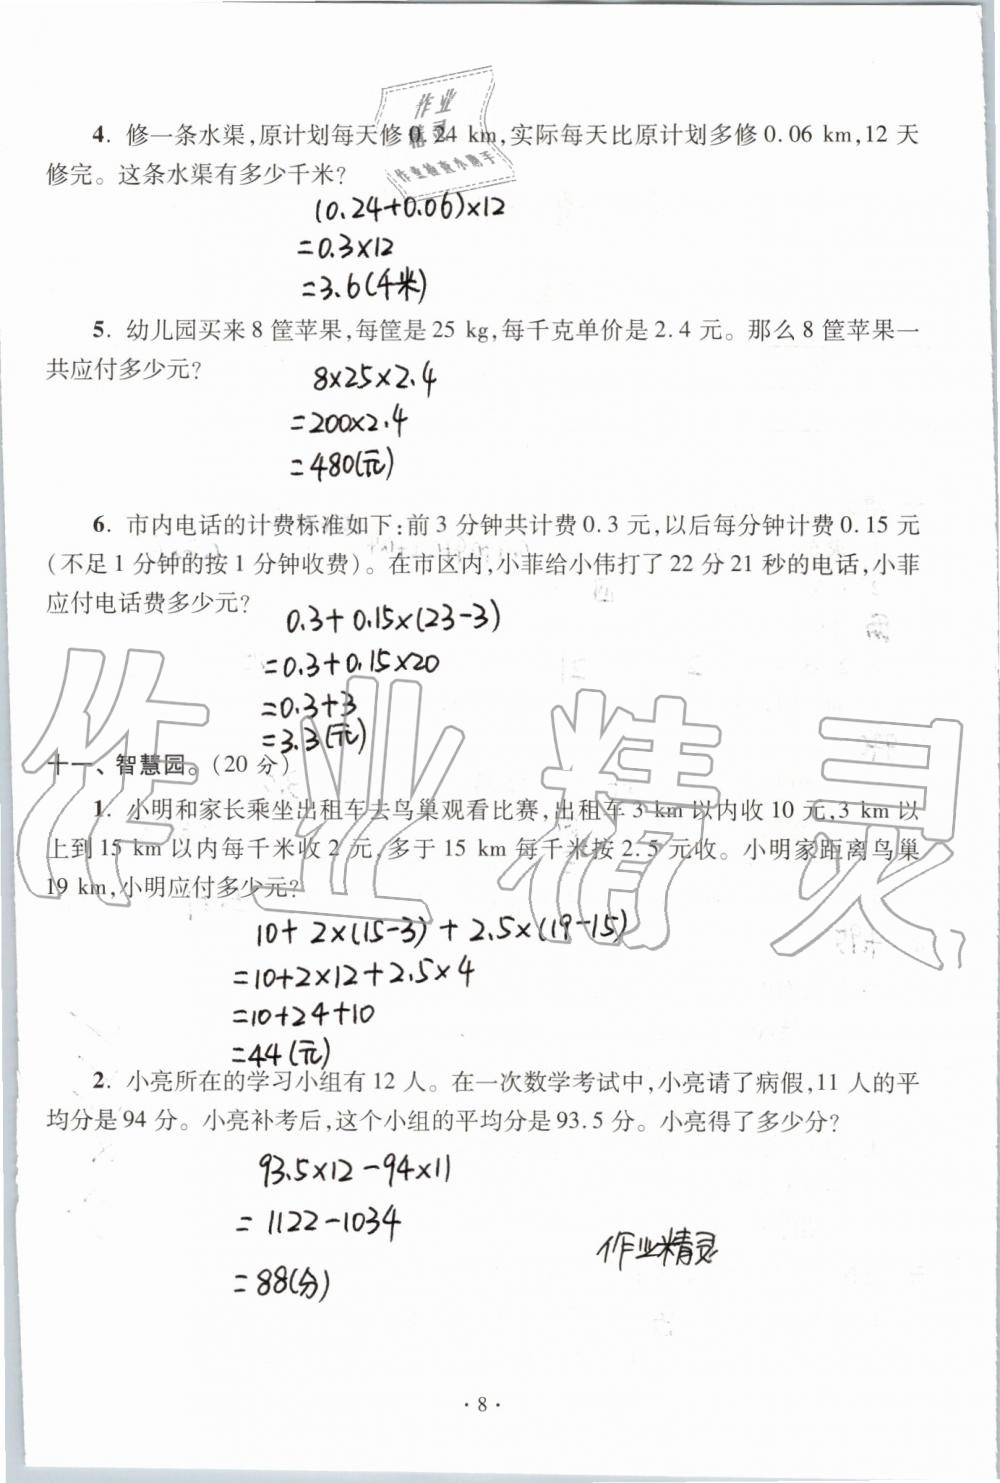 作业
精灵
作业检查小助手
4. 修一条水渠,原计划每天修0.24 km,实际每天比原计划多修0.06 km,12天
修完。这条水渠有多少千米?
(0.24+0.06)×12
=0.3×12
=3.6(千米)
5. 幼儿园买来8筐苹果,每筐是25 kg,每千克单价是2.4元。那么8筐苹果一
共应付多少元?
8×25×2.4
=200×2.4
=480(元)
6. 市内电话的计费标准如下:前3分钟共计费0.3元,以后每分钟计费0.15元
(不足1分钟的按1分钟收费)。在市区内,小菲给小伟打了22分21秒的电话,小菲
应付电话费多少元?
0.3+0.15×(23-3)
=0.3+0.15×20
=0.3+3
=3.3(元)
作业精灵
十一、智慧园。(20分)
1. 小明和家长乘坐出租车去鸟巢观看比赛,出租车3 km以内收10元,3 km以
上到15 km以内每千米收2元,多于15 km每千米按2.5元收。小明家距离鸟巢
19 km,小明应付多少元?
10+2×(15-3)+2.5×(19-15)
=10+2×12+2.5×4
=10+24+10
=44(元)
2. 小亮所在的学习小组有12人。在一次数学考试中,小亮请了病假,11人的平
均分是94分。小亮补考后,这个小组的平均分是93.5分。小亮得了多少分?
93.5×12-94×11
=1122-1034
=88(分)
作业精灵
·8·